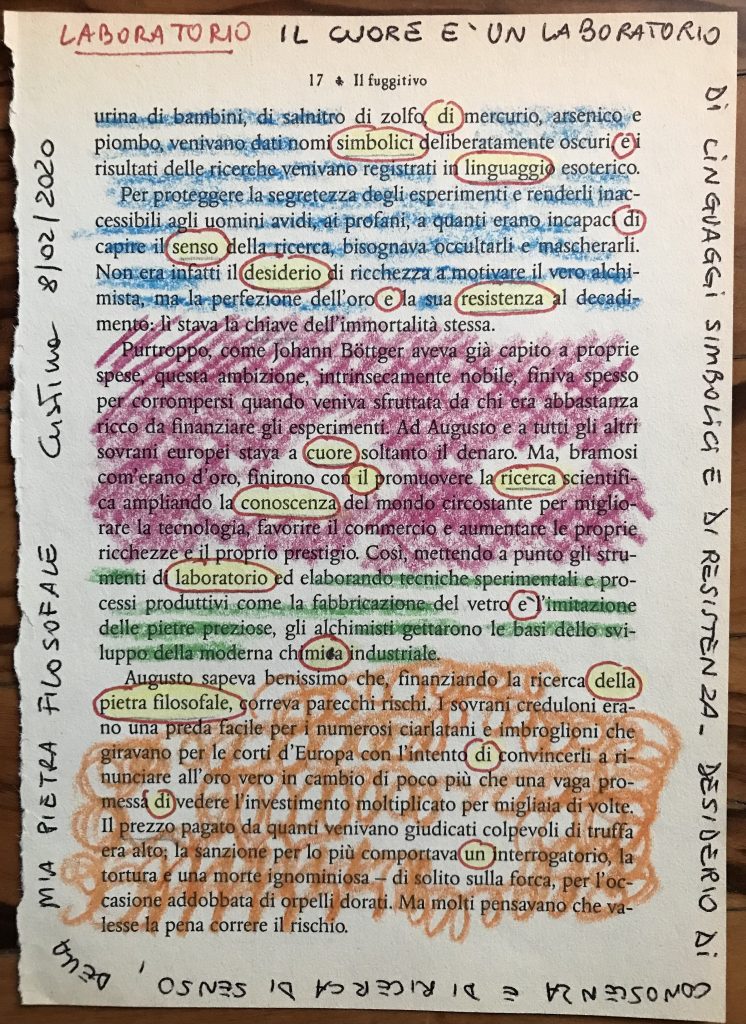 LABORATORIO IL CUORE E' UN LABORATORIO
DI LINGUAGGI SIMBOLICI E DI RESISTENZA - DESIDERIO DI
CONOSCENZA E DI RICERCA DI SENSO,
DELLA
MIA PIETRA FILOSOFALE
Cristina 8/02/2020
17 Il fuggitivo
urina di bambini, di salnitro di zolfo, di mercurio, arsenico e
piombo, venivano dati nomi simbolici deliberatamente oscuri, e i
risultati delle ricerche venivano registrati in linguaggio esoterico.
Per proteggere la segretezza degli esperimenti e renderli inac-
cessibili agli uomini avidi, ai profani, a quanti erano incapaci di
capire il senso della ricerca, bisognava occultarli e mascherarli.
Non era infatti il desiderio di ricchezza a motivare il vero alchi-
mista, ma la perfezione dell'oro e la sua resistenza al decadi-
mento: lì stava la chiave dell'immortalità stessa.
Purtroppo, come Johann Böttger aveva già capito a proprie
spese, questa ambizione, intrinsecamente nobile, finiva spesso
per corrompersi quando veniva sfruttata da chi era abbastanza
ricco da finanziare gli esperimenti. Ad Augusto e a tutti gli altri
sovrani europei stava a cuore soltanto il denaro. Ma, bramosi
com'erano d'oro, finirono con il promuovere la ricerca scientifi-
ca ampliando la conoscenza del mondo circostante per miglio-
rare la tecnologia, favorire il commercio e aumentare le proprie
ricchezze e il proprio prestigio. Così, mettendo a punto gli stru-
menti di laboratorio ed elaborando tecniche sperimentali e pro-
cessi produttivi come la fabbricazione del vetro e l'imitazione
delle pietre preziose, gli alchimisti gettarono le basi dello svi-
luppo della moderna chimica industriale.
Augusto sapeva benissimo che, finanziando la ricerca della
pietra filosofale, correva parecchi rischi. I sovrani creduloni era-
no una preda facile per i numerosi ciarlatani e imbroglioni che
giravano per le corti d'Europa con l'intento di convincerli a ri-
nunciare all'oro vero in cambio di poco più che una vaga pro-
messa di vedere l'investimento moltiplicato per migliaia di volte.
Il prezzo pagato da quanti venivano giudicati colpevoli di truffa
era alto; la sanzione per lo più comportava un interrogatorio, la
tortura e una morte ignominiosa – di solito sulla forca, per l'oc-
casione addobbata di orpelli dorati. Ma molti pensavano che va-
lesse la pena correre il rischio.